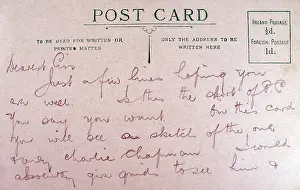 POST CARD
TO BE USED FOR WRITTEN OR PRINTED MATTER
ADDRESS TO BE WRITTEN ON THIS SIDE
INLAND POSTAGE ½d.
FOREIGN POSTAGE 1d.
Dearest Cis
Just a few lines hoping you
are well. Is this the sort of P.C
you say you want On this card
you will see a sketch of the one
& only Charlie Chapman I would
absolutely give quids to see him &